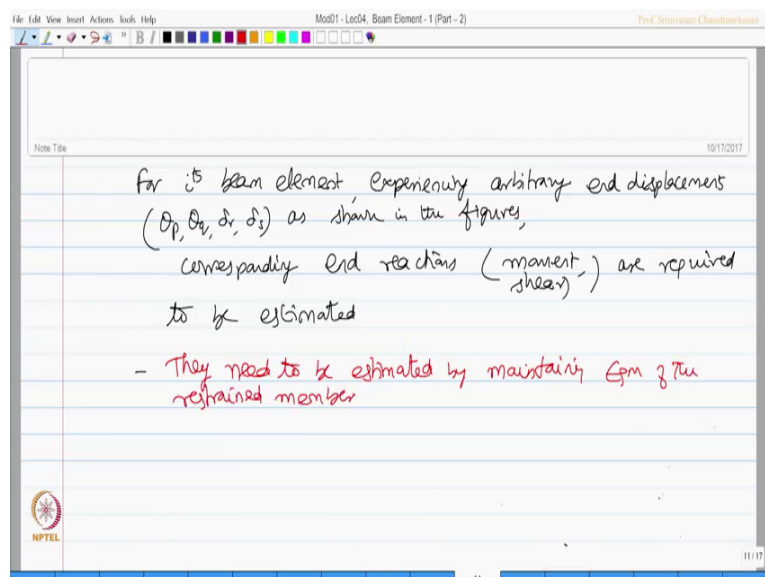 File Edit View Insert Actions Tools Help
Mod01 - Lec04, Beam Element - 1 (Part – 2)
Prof. Srinivasan Chandrasekaran
B I
Note Title
10/17/2017
For its beam element, experiencing arbitrary end displacement
(θp, θq, δr, δs) as shown in the figures,
corresponding end reactions (moment, shear) are required
to be estimated
- They need to be estimated by maintaining Eqm of the
restrained member
NPTEL
11/17